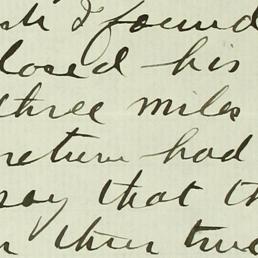 I found
losed his
three miles
return had
say that th